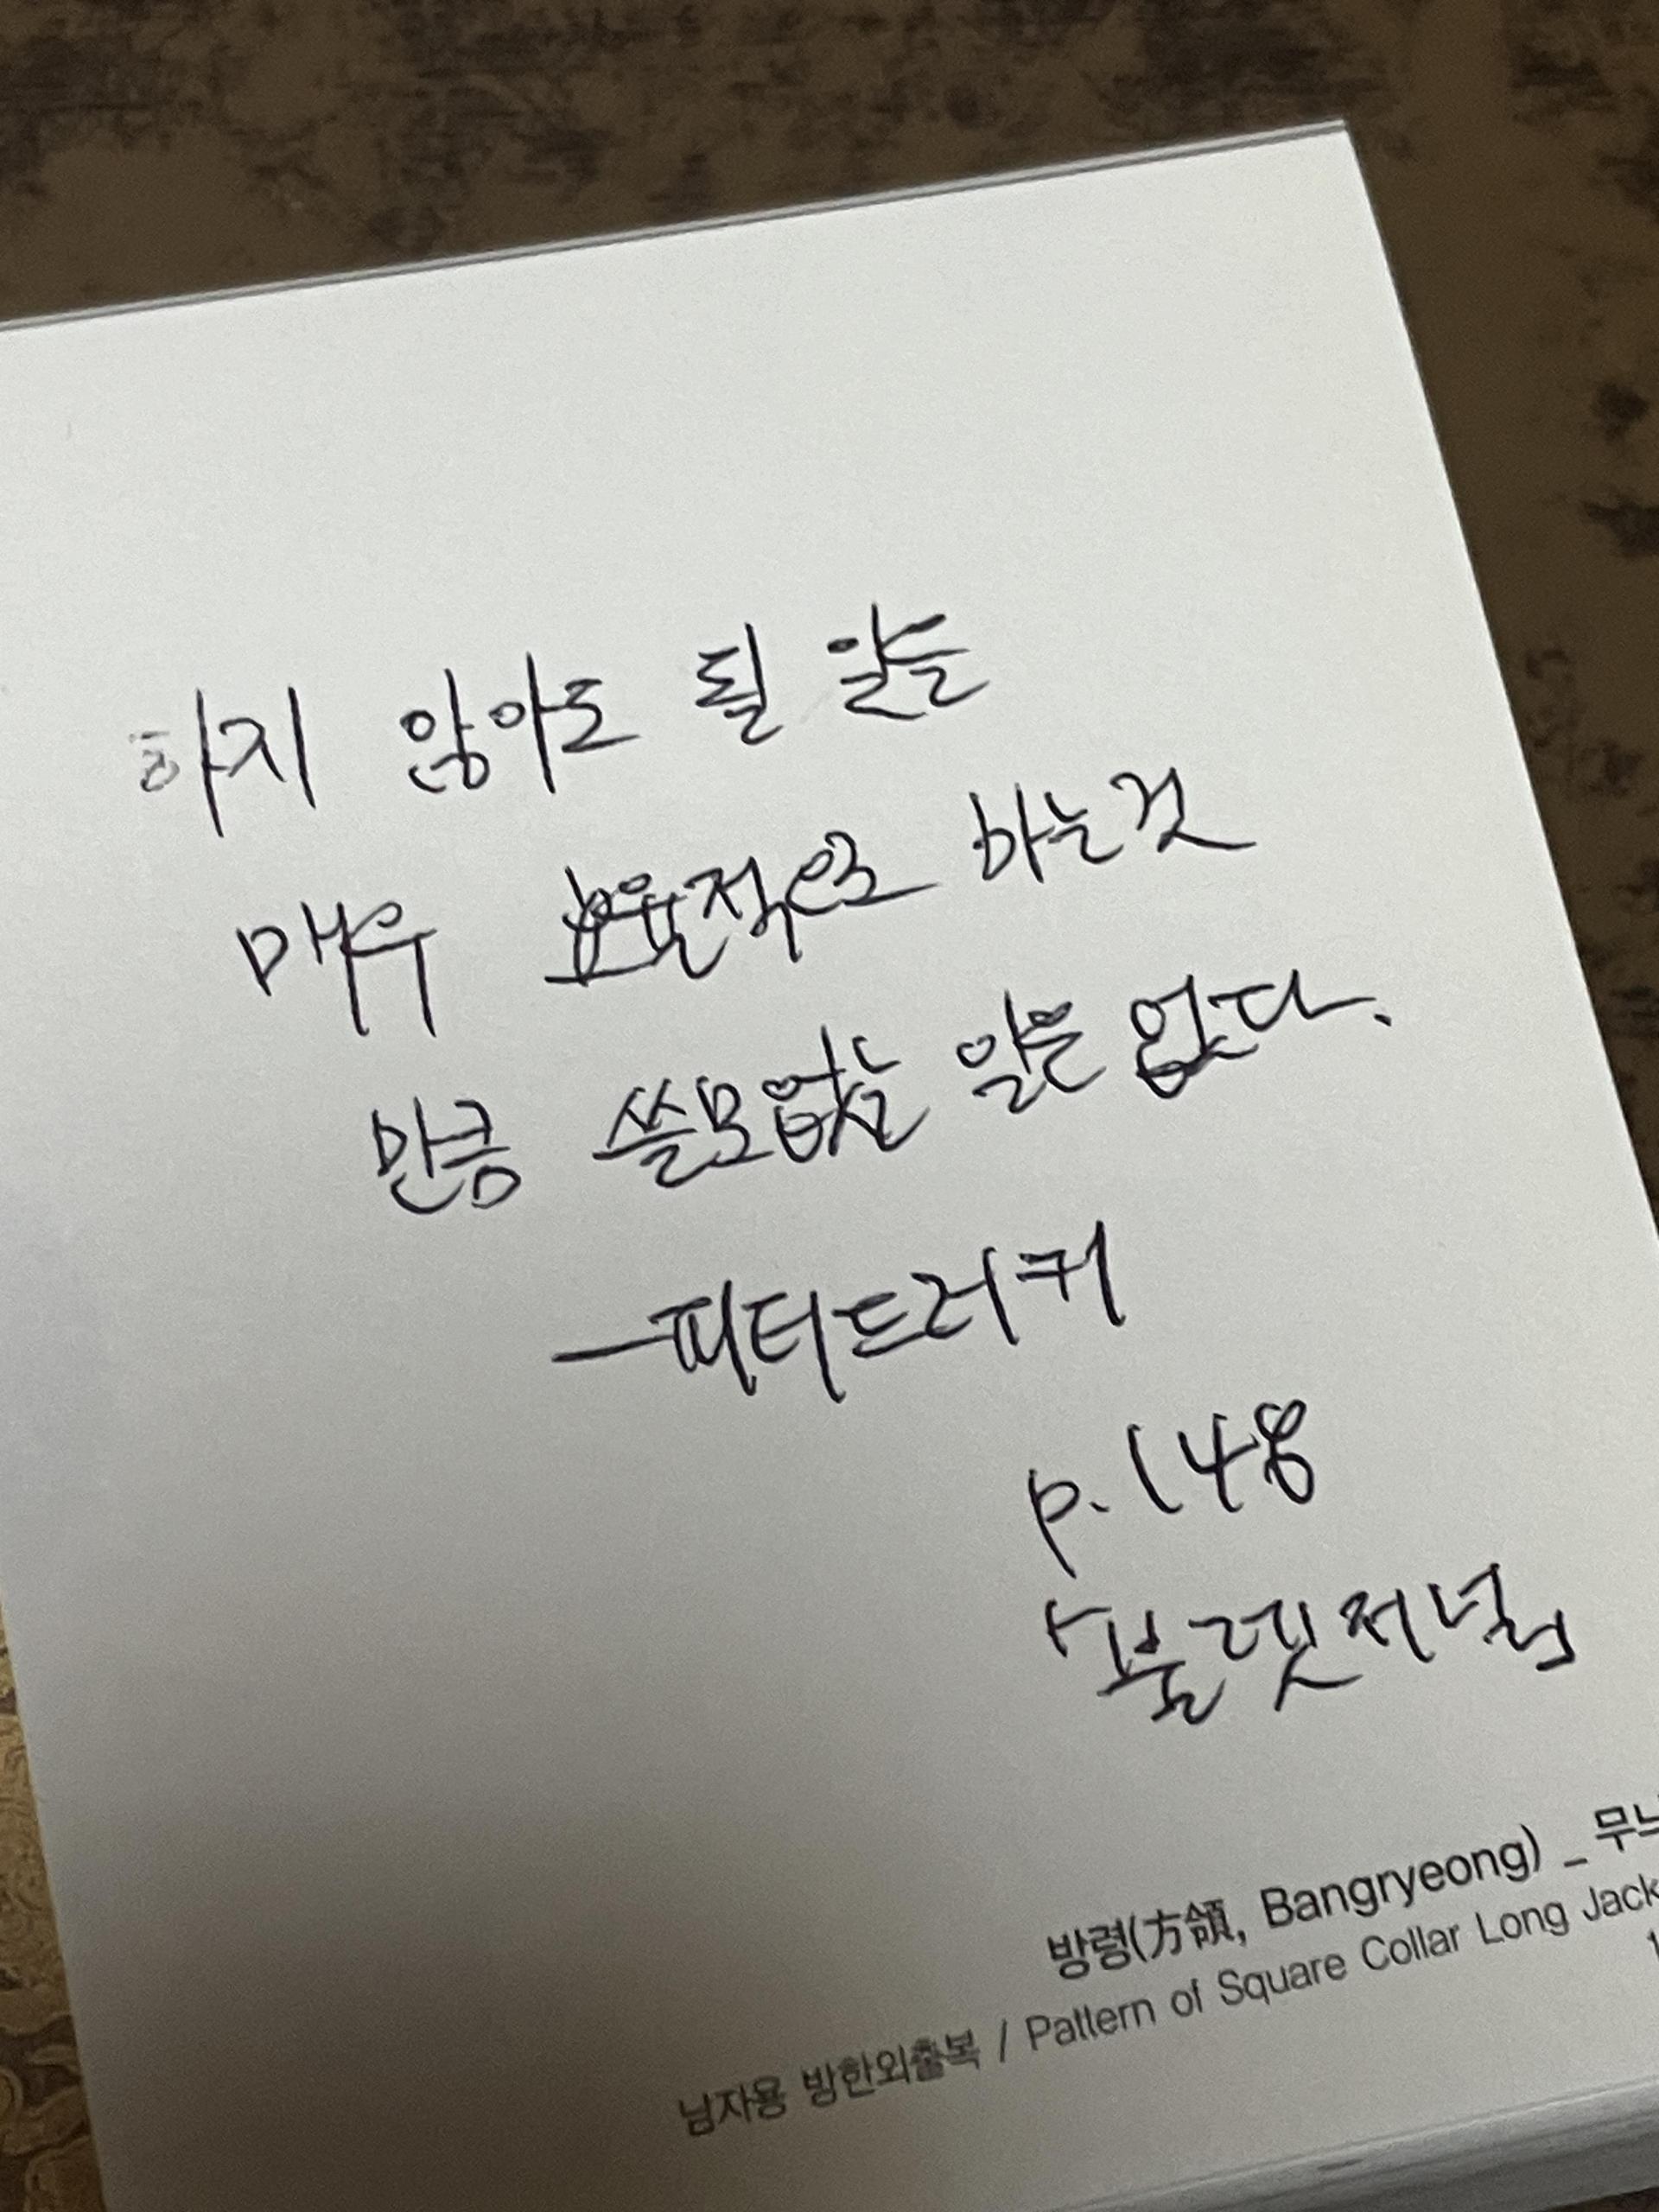 하지 않아도 될 일들
매우 효율적으로 하는것
만큼 쓸모없는 일은 없다.
—피터드러커
p.148
「불렛저널」
방령(方領, Bangryeong) _ 무늬
남자용 방한외출복 / Pattern of Square Collar Long Jack
1